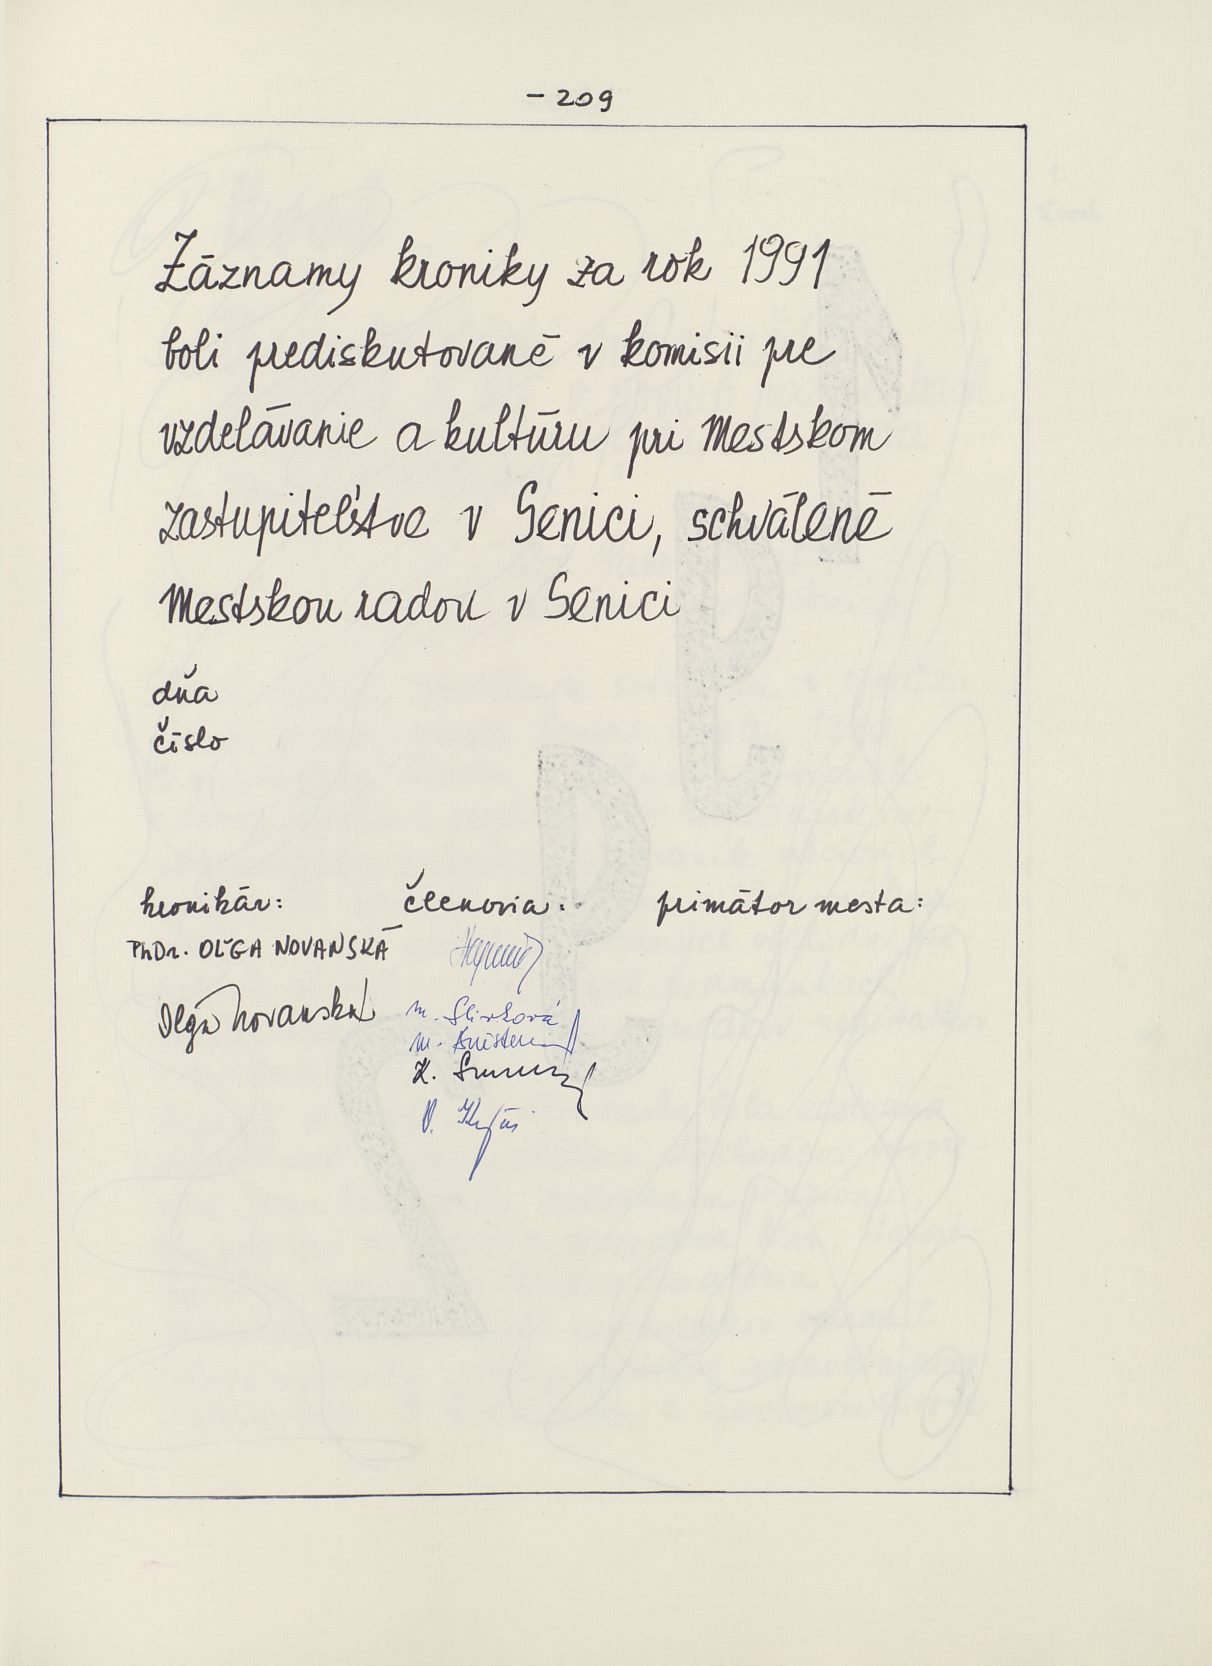 - 209
Záznamy kroniky za rok 1991
boli prediskutované v komisii pre
vzdelávanie a kultúru pri Mestskom
zastupiteľstve v Senici, schválené
Mestskou radou v Senici
dňa
číslo
kronikár: členovia: primátor mesta:
PhDr. OĽGA NOVANSKÁ
Oľga Novanská
M. Slivková
M.
K.
V.